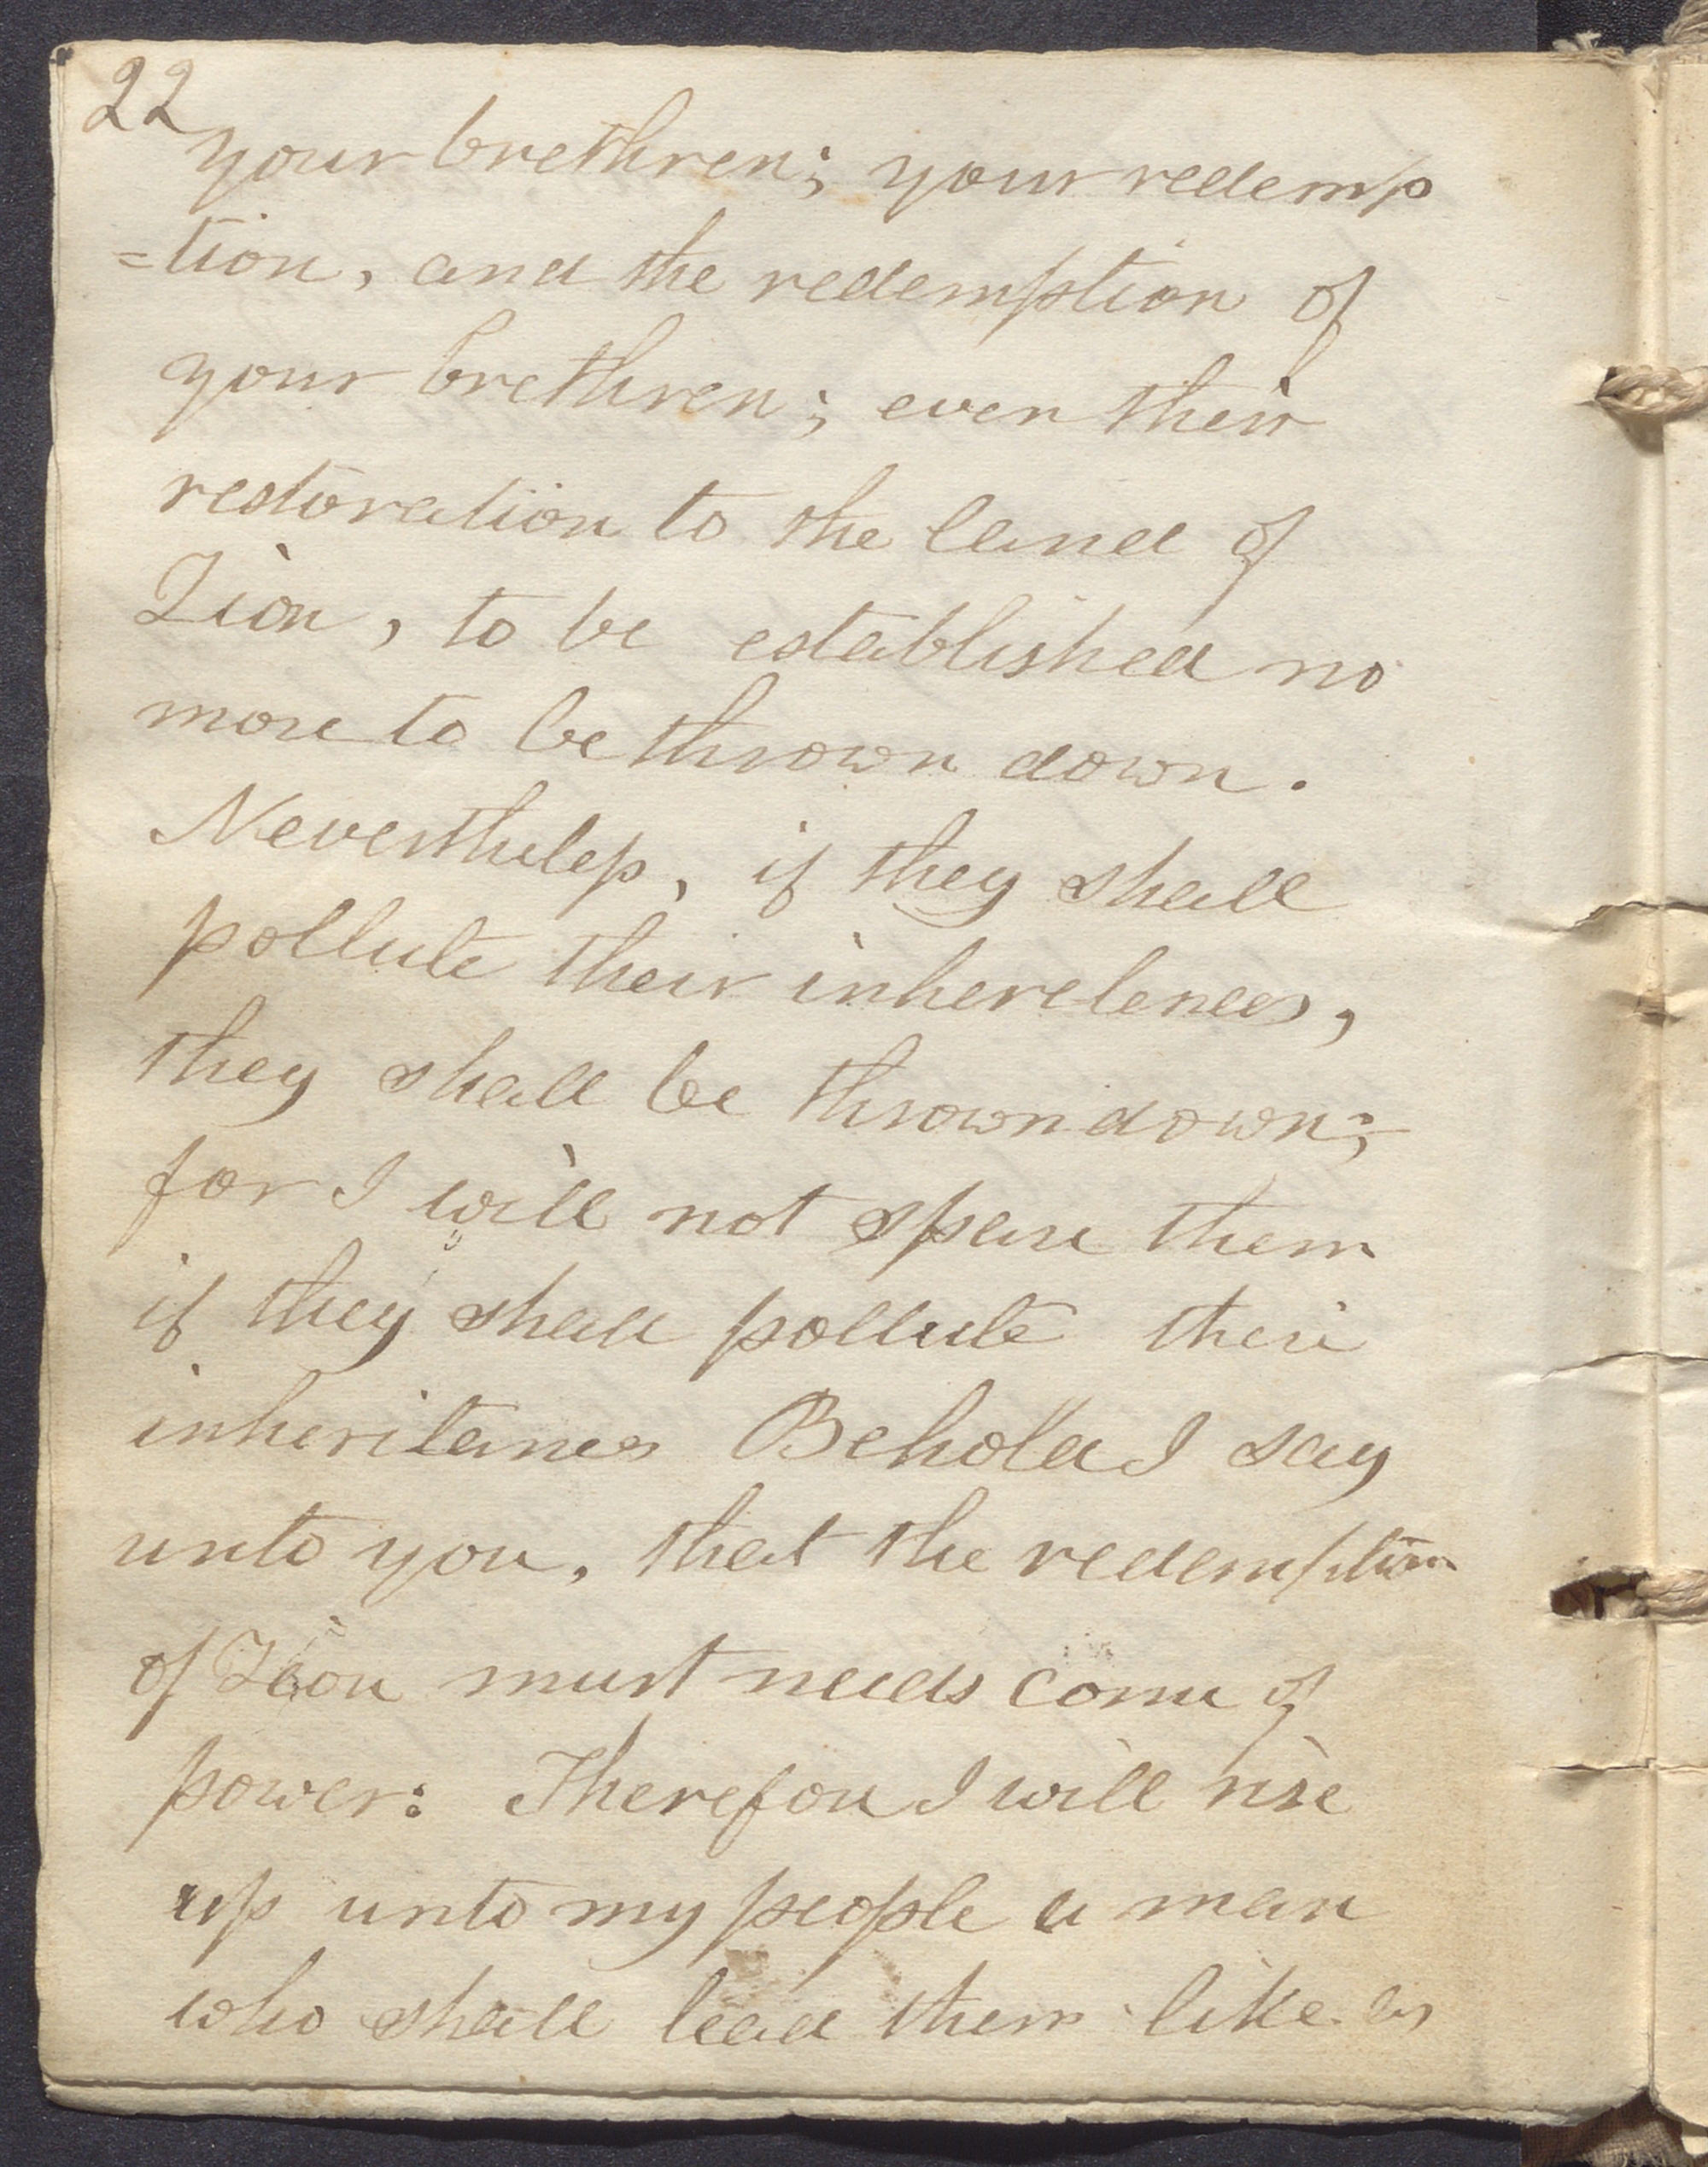 22
your brethren; your redemp
=tion, and the redemption of
your brethren; even their
restoration to the land of
Zion, to be established no
more to be thrown down.
Nevertheless, if they shall
pollute their inheretences,
they shall be thrown down;
for I will not spare them
if they shall pollute their
inheritances Behold I say
unto you, that the redemption
of Zion must needs come of
power: Therefore I will rise
up unto my people a man
who shall lead them like as